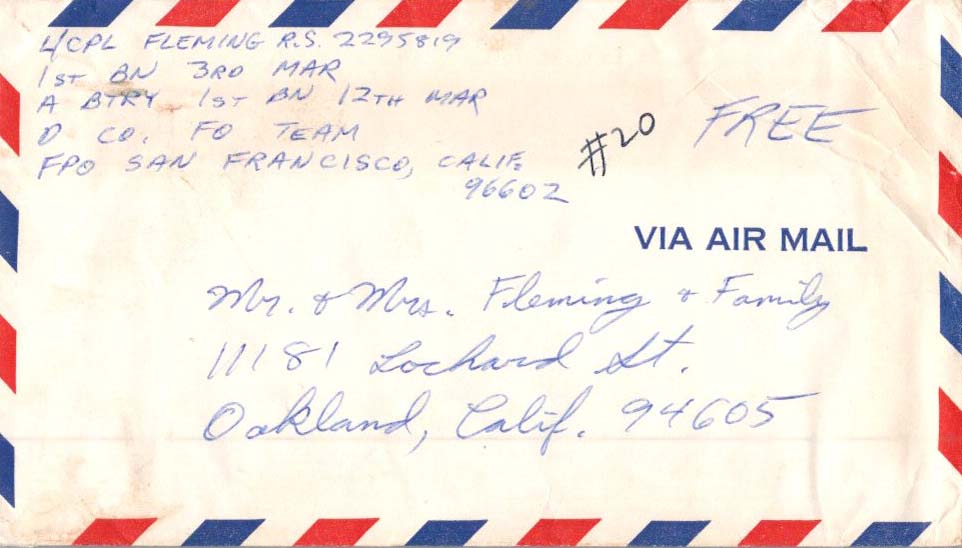 L/CPL FLEMING R.S. 2295819
1ST BN 3RD MAR
A BTRY 1ST BN 12TH MAR
D CO. FO TEAM
FPO SAN FRANCISCO, CALIF.
96602
#20
FREE
VIA AIR MAIL
Mr. & Mrs. Fleming & Family
11181 Lochard St.
Oakland, Calif. 94605